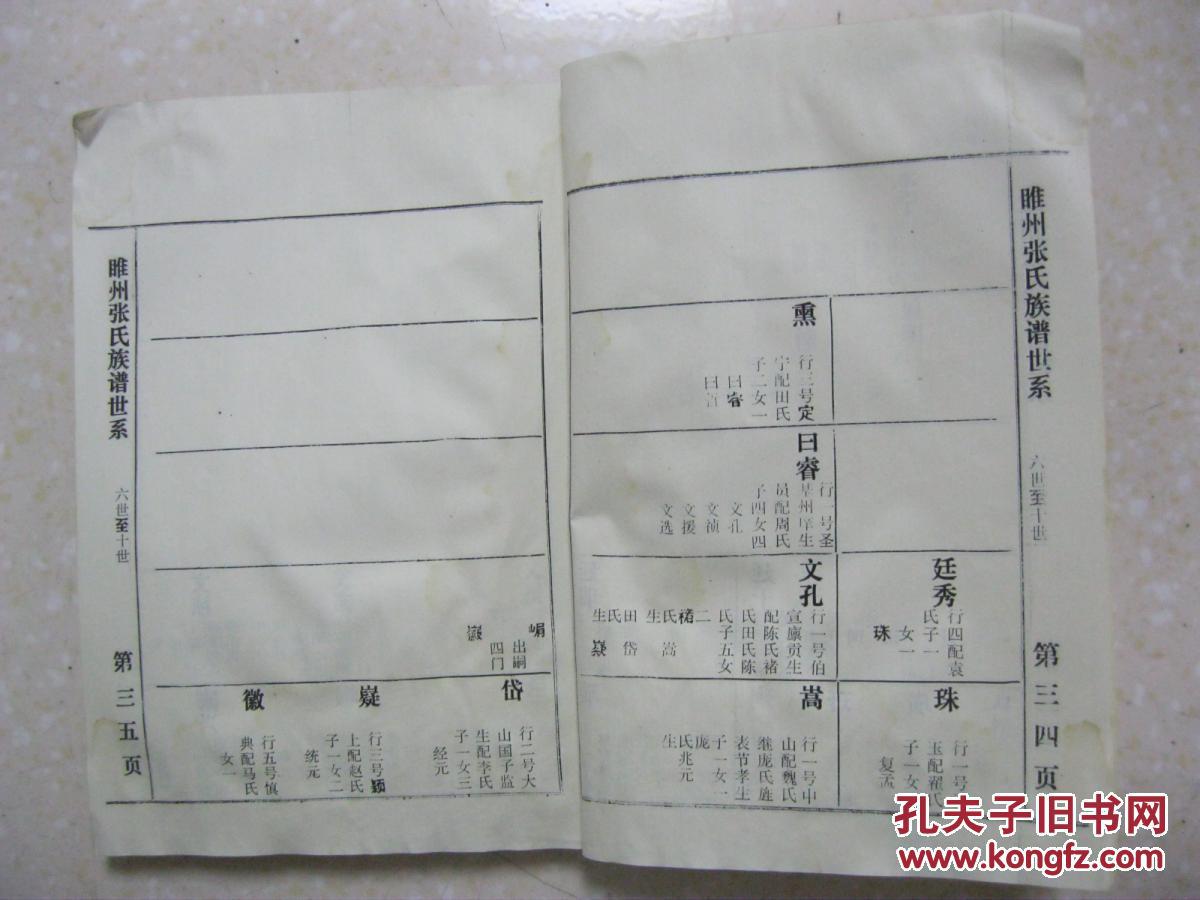 睢州张氏族谱世系
六世至十世
第三四页
廷秀
行四配袁
氏子一
女一
珠
珠
行一号
玉配翟氏
子一女
复孟
熏
行三号定
宇配田氏
子二女一
曰睿
曰
曰睿
行一号圣
基州庠生
员配周氏
子四女四
文孔
文祯
文援
文选
文孔
行一号伯
宣廪贡生
配陈氏褚
氏田氏陈
氏子五女
二
褚氏生
嵩
田氏生
岱
嶷
嵩
行一号中
山配魏氏
继庞氏旌
表节孝生
子一女一
庞
氏兆元
生
睢州张氏族谱世系
六世至十世
第三五页
嵋
出嗣
四门
岱
行二号大
山国子监
生配李氏
子一女三
经元
嶷
行三号颖
上配赵氏
子一女二
统元
徽
行五号慎
典配马氏
女一
孔夫子旧书网
www.kongfz.com